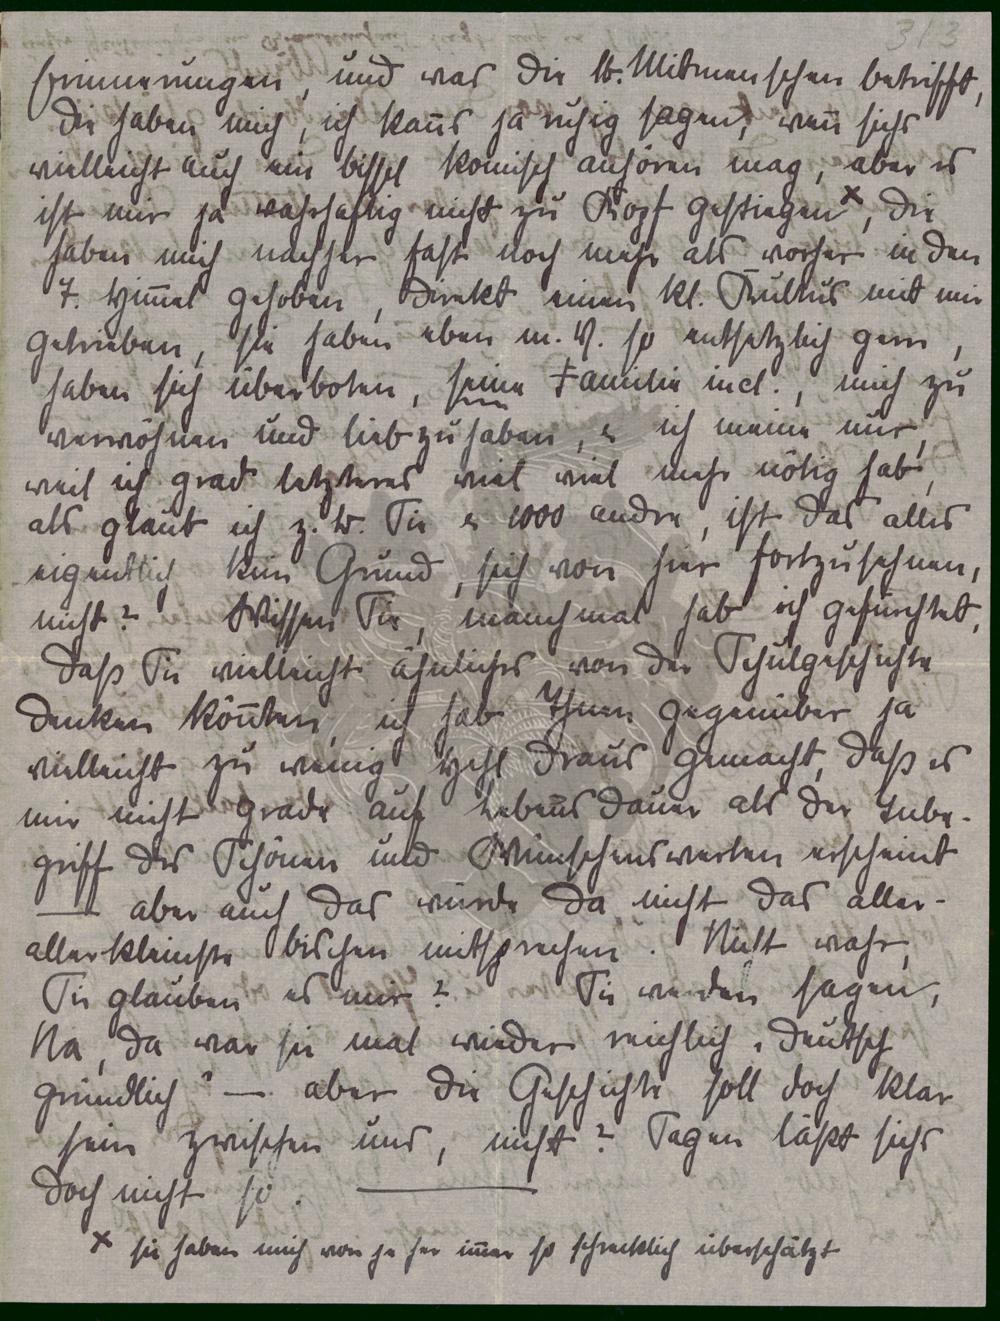 3/3
Erinnerungen, und was die lb. Mitmenschen betrifft,
die haben mich, ich kan̅s ja ruhig sagen, wen̅ sichs
vielleicht auch ein bissel komisch anhören mag, aber es
ist mir ja wahrhaftig nicht zu Kopf gestiegen ×, die
haben mich nachher fast noch mehr als vorher in den
7. Him̅el gehoben, direkt einen kl. Kultus mit mir
getrieben, sie haben eben m. V. so entsetzlich gern,
haben sich überboten, seine Familie incl., mich zu
verwöhnen und liebzuhaben, & ich meine nur,
weil ich grad letzteres viel viel mehr nötig hab',
als glaub ich z. B. Sie & 1000 andre, ist das alles
eigentlich kein Grund, sich von hier fortzusehnen,
nicht? Wissen Sie, manchmal hab ich gefürchtet,
daß Sie vielleicht ähnliches von der Schulgeschichte
denken kön̅ten, ich hab Ihnen gegenüber ja
vielleicht zu wenig Hehl draus gemacht, daß es
mir nicht grade auf Lebensdauer als der Inbe-
griff des Schönen und Wünschenswerten erscheint
— aber auch das würde da nicht das aller-
allerkleinste bischen mitsprechen. Nicht wahr,
Sie glauben es mir? Sie werden sagen,
Na, da war sie mal wieder reichlich „deutsch
gründlich" — aber die Geschichte soll doch klar
sein zwischen uns, nicht? Sagen läßt sichs
doch nicht so.
× sie haben mich von je her im̅er so schrecklich überschätzt